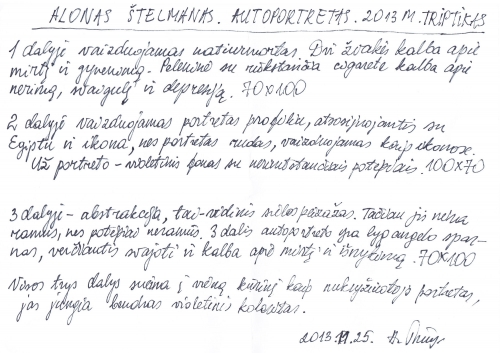 ALONAS ŠTELMANAS. AUTOPORTRETAS. 2013 M. TRIPTIKAS
1 dalyje vaizduojamas natiurmortas. Dvi žvakės kalba apie
mirtį ir gyvenimą. Peleninė su rūkstančia cigarete kalba apie
nerimą, svaigulį ir depresiją. 70X100
2 dalyje vaizduojamas portretas profiliu, atsisijojantis su
Egiptu ir ikona, nes portretas rudas, vaizduojamas kaip ikonose.
Už portreto - violetinis fonas su potėpiais. 100X70
3 dalyje - abstrakcija, tai - vidinis sielos peizažas. Tačiau jis nėra
ramus, nes potėpiai neramūs. 3 dalis autoportreto yra lyg angelo spar-
nas, verčiantis svajoti ir kalba apie mirtį ir išnykimą. 70X100
Visos trys dalys sueina į vieną kūrinį kaip nukryžiuotojo portretas,
jas jungia bendras violetinis koloritas.
2013.11.25.